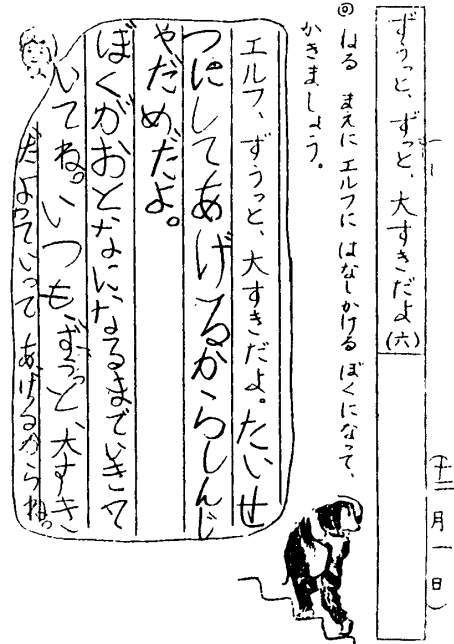 ずうっと、ずっと、大すきだよ(六)
(十二月一日)
◎ねる まえに エルフに はなしかける ぼくになって、
かきましょう。
エルフ、ずうっと、大すきだよ。たいせ
つにしてあげるからしんじ
ゃだめだよ。
ぼくがおとなになるまでいきて
いてね。いつも、ずうっと、大すき
だよっていってあげるからね。